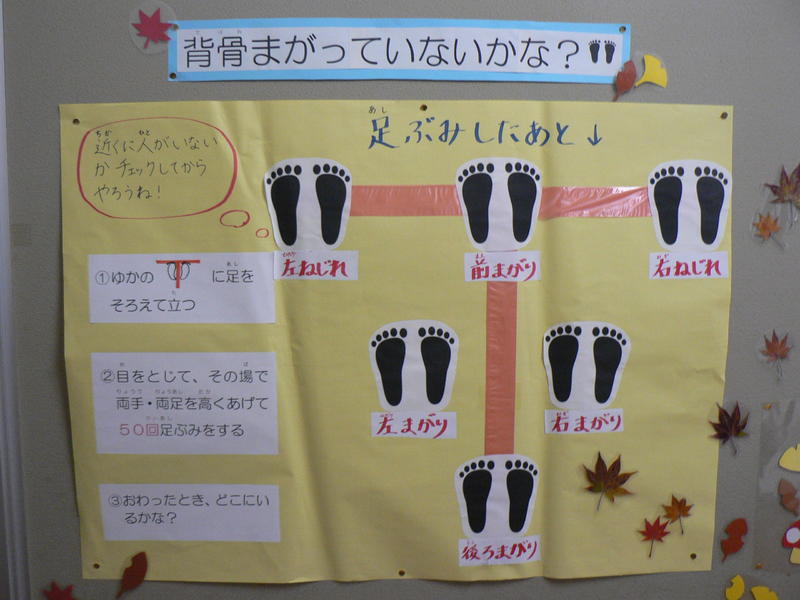 背骨まがっていないかな？
足ぶみしたあと↓
近くに人がいない
か チェックしてから
やろうね！
①ゆかの に足を
そろえて立つ
②目をとじて、その場で
両手・両足を高くあげて
50回足ぶみをする
③おわったとき、どこにい
るかな？
左ねじれ
前まがり
右ねじれ
左まがり
右まがり
後ろまがり